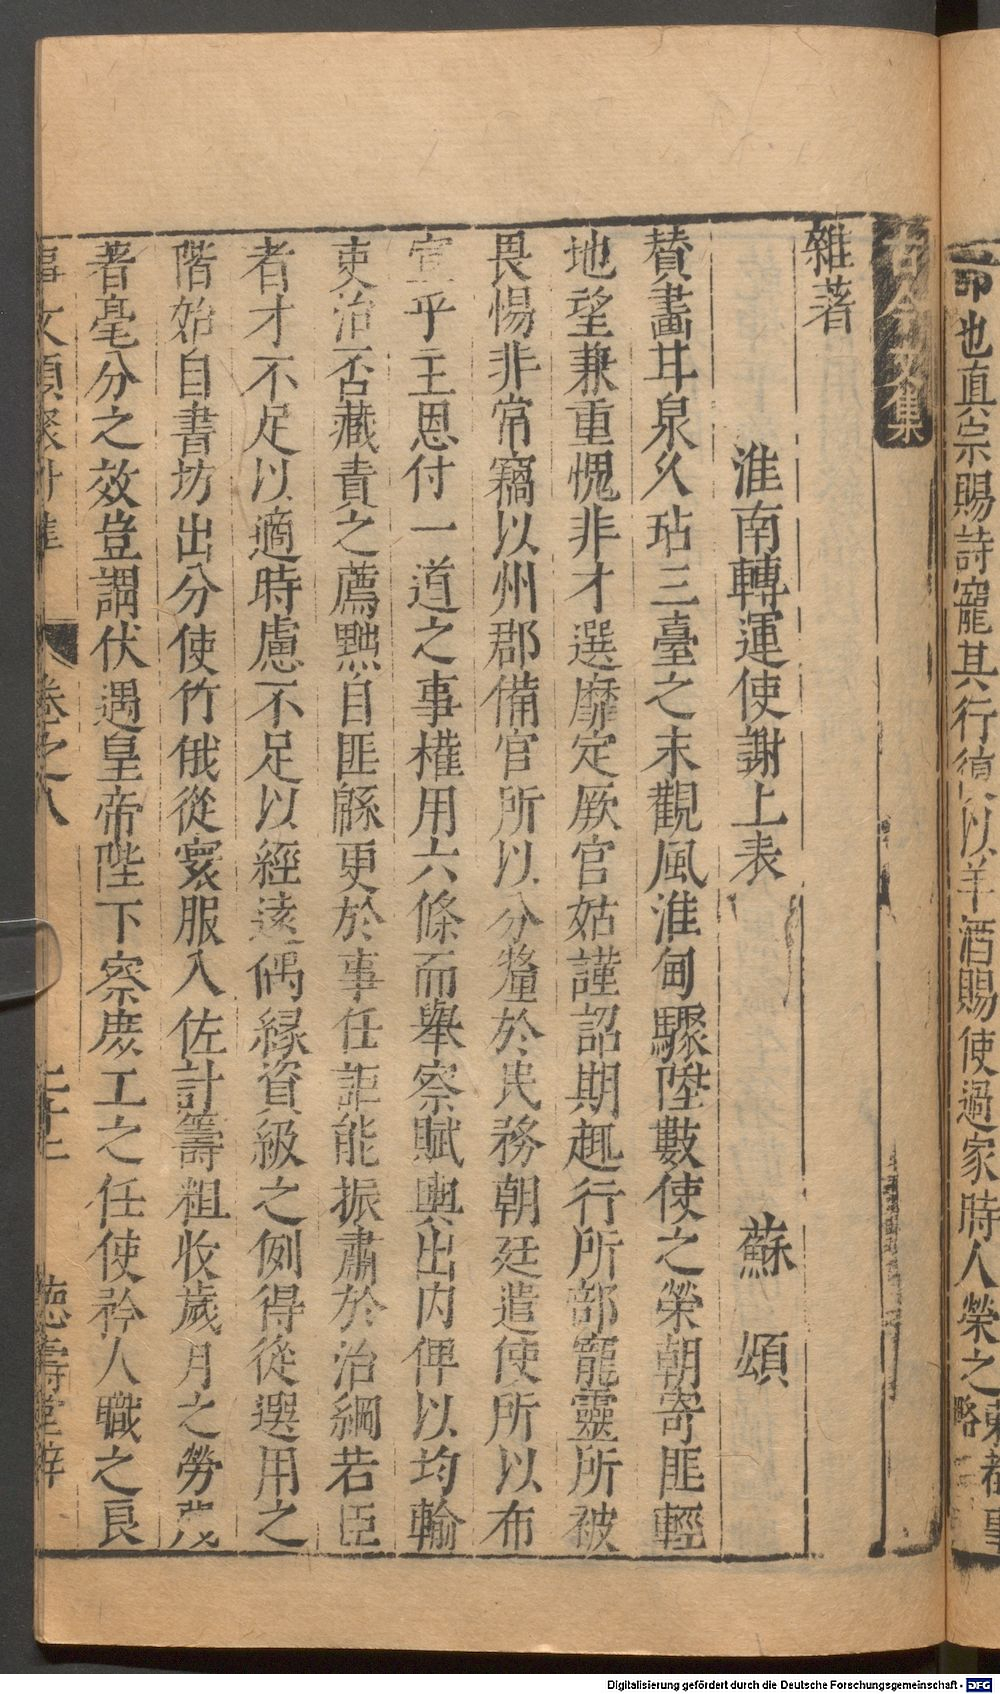 命也真宗賜詩寵其行復以羊酒賜使過家時人榮之東都事畧
古今文集
雜著
淮南轉運使謝上表 蘇頌
賛畫甘泉久玷三臺之末觀風淮甸驟陞數使之榮朝寄匪輕
地望兼重愧非才選靡定厥官姑謹詔期趣行所部寵靈所被
畏惕非常竊以州郡備官所以分釐於民務朝廷遣使所以布
宣乎主恩付一道之事權用六條而舉察賦輿出内俾以均輸
吏治否藏責之薦黜自匪繇更於事任詎能振肅於治綱若臣
者才不足以適時慮不足以經遠偶緣資級之例得從選用之
階始自書坊出分使竹俄從寰服入佐計籌粗收歲月之勞蔑
著毫分之效豈謂伏遇皇帝陛下察庶工之任使矜人職之良
事文類聚外集 卷之八 二十二 德壽堂梓
Digitalisierung gefördert durch die Deutsche Forschungsgemeinschaft - DFG